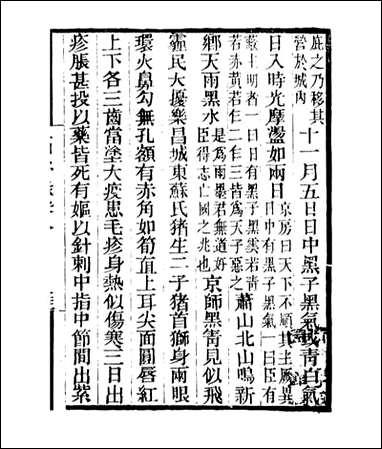 庇之乃移其
營於城內
十一月五日日中黑子黑氣或靑白氣
日入時光摩盪如兩日
京房曰天下不順其主厥異
日中有黑子黑氣一曰臣有
蔽主明者一曰有黑子黑雲若靑
若赤黃若乍二乍三皆爲天子惡之
蕭山北山鳴新
鄉天雨黑水
是爲雨墨君無道好
臣得志亡國之兆也
京師黑靑見似飛
霾民大擾樂昌城東蘇氏猪生二子猪首獅身兩眼
環火鼻勾無孔額有赤角如筍直上耳尖面圓唇紅
上下各三齒當塗大疫患毛疹身熱似傷寒三日出
疹脹甚投以藥皆死有嫗以針刺中指中節間出紫